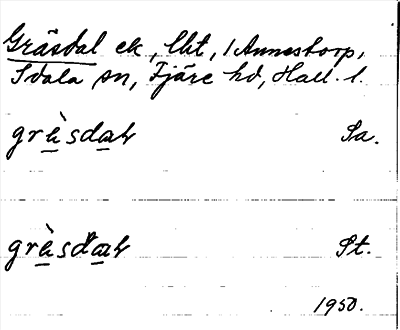 Gräsdal ek, lht, i Annestorp,
Idala sn, Fjäre hd, Hall. l.
grè̱sda̱ɫ Sa.
grè̱sda̱ɫ St.
1950.